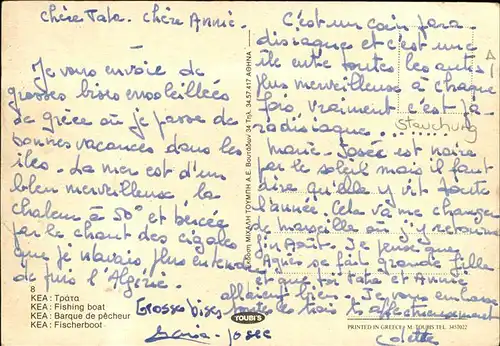 Chère Tata. Chère Annie.
Je vous envoie de
grosses bises ensoleillées
de grèce où je passe de
bonnes vacances dans les
îles. La mer est d'un
bleu merveilleuse, la
chaleur à 50° et bercée
par le chant des cigales
que je n'avais plus entendu
depuis l'Algérie.
Grosses bises
Maria-Josée
C'est un coin para
disiaque et c'est une
île entre toutes les autres
plus merveilleuse à chaque
fois vraiment c'est pa-
radisiaque...
Stauchung
Marie Josée est noire
par le soleil mais il faut
dire qu'elle y vit toute
l'année. Cela va me changer
de Marseille où j'y retourne
in Août. Je pense que
Agnès se fait grande fille
et que toi Tata et Annie
allaient bien. Je vous embrasse
toutes les trois affectueusement
Colette
8
ΚΕΑ: Τράτα
KEA: Fishing boat
KEA: Barque de pêcheur
KEA: Fischerboot
Έκδοση ΜΙΧΑΛΗ ΤΟΥΜΠΗ Α.Ε. Βουτάδων 34 Τηλ. 34.57.417 ΑΘΗΝΑ
TOUBI'S
PRINTED IN GREECE: M. TOUBIS TEL. 3457022